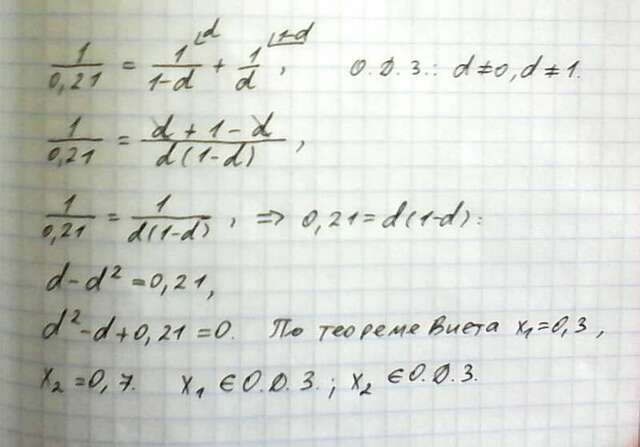 1/0,21 = 1/(1-d) ⌊d + 1/d ⌊1-d, О.D.З.: d≠0, d≠1.
1/0,21 = (d+1-d)/(d(1-d)),
1/0,21 = 1/(d(1-d)), => 0,21=d(1-d):
d-d²=0,21,
d²-d+0,21=0. По теореме Виета x₁=0,3,
x₂=0,7. x₁ ∈ О.D.З.; x₂ ∈ О.D.З.